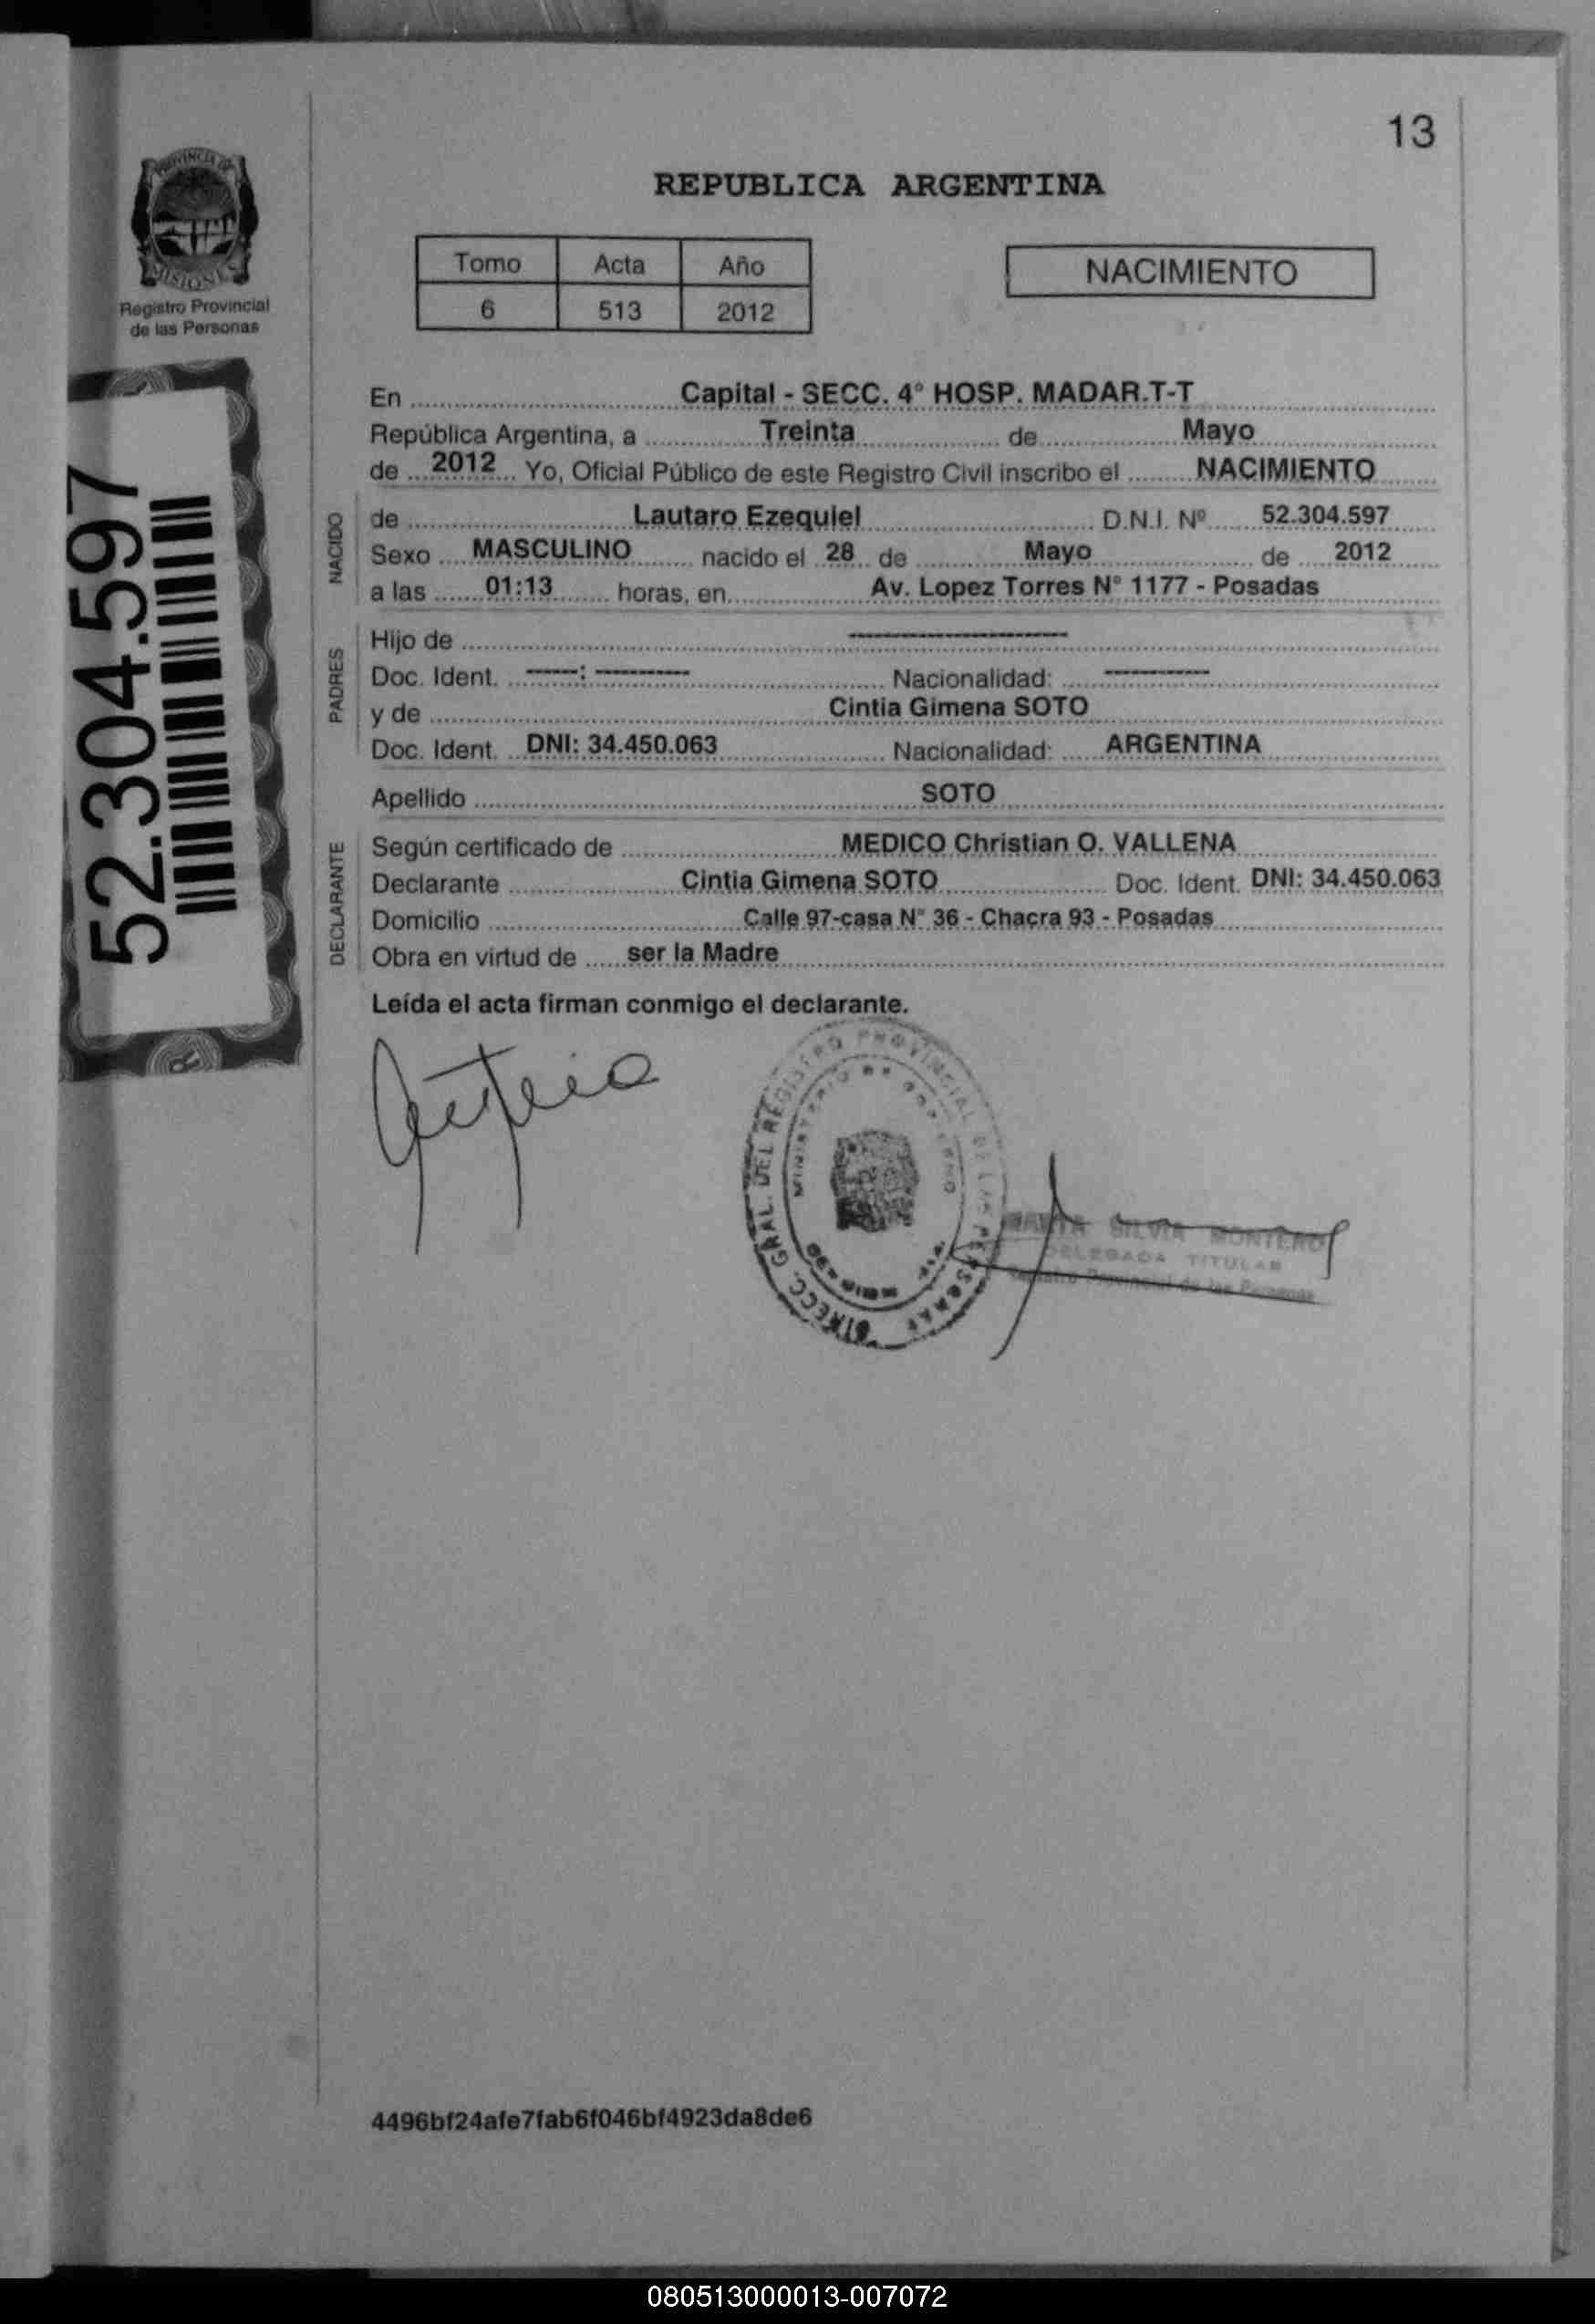 13
PROVINCIA DE
MISIONES
Registro Provincial
de las Personas
REPUBLICA ARGENTINA
Tomo Acta Año
6 513 2012
NACIMIENTO
52.304.597
En Capital - SECC. 4° HOSP. MADAR.T-T
República Argentina, a Treinta de Mayo
de 2012 Yo, Oficial Público de este Registro Civil inscribo el NACIMIENTO
NACIDO
de Lautaro Ezequiel D.N.I. Nº 52.304.597
Sexo MASCULINO nacido el 28 de Mayo de 2012
a las 01:13 horas, en Av. Lopez Torres N° 1177 - Posadas
PADRES
Hijo de ----------
Doc. Ident. ----: ------- Nacionalidad: --------
y de Cintia Gimena SOTO
Doc. Ident. DNI: 34.450.063 Nacionalidad: ARGENTINA
Apellido SOTO
DECLARANTE
Según certificado de MEDICO Christian O. VALLENA
Declarante Cintia Gimena SOTO Doc. Ident. DNI: 34.450.063
Domicilio Calle 97-casa N° 36 - Chacra 93 - Posadas
Obra en virtud de ser la Madre
Leída el acta firman conmigo el declarante.
DIRECC. GRAL. DEL REGISTRO PROVINCIAL DE LAS PERSONAS
MINISTERIO DE GOBIERNO
SILVIA MONTERO
DELEGADA TITULAR
Registro Provincial de las Personas
4496bf24afe7fab6f046bf4923da8de6
080513000013-007072